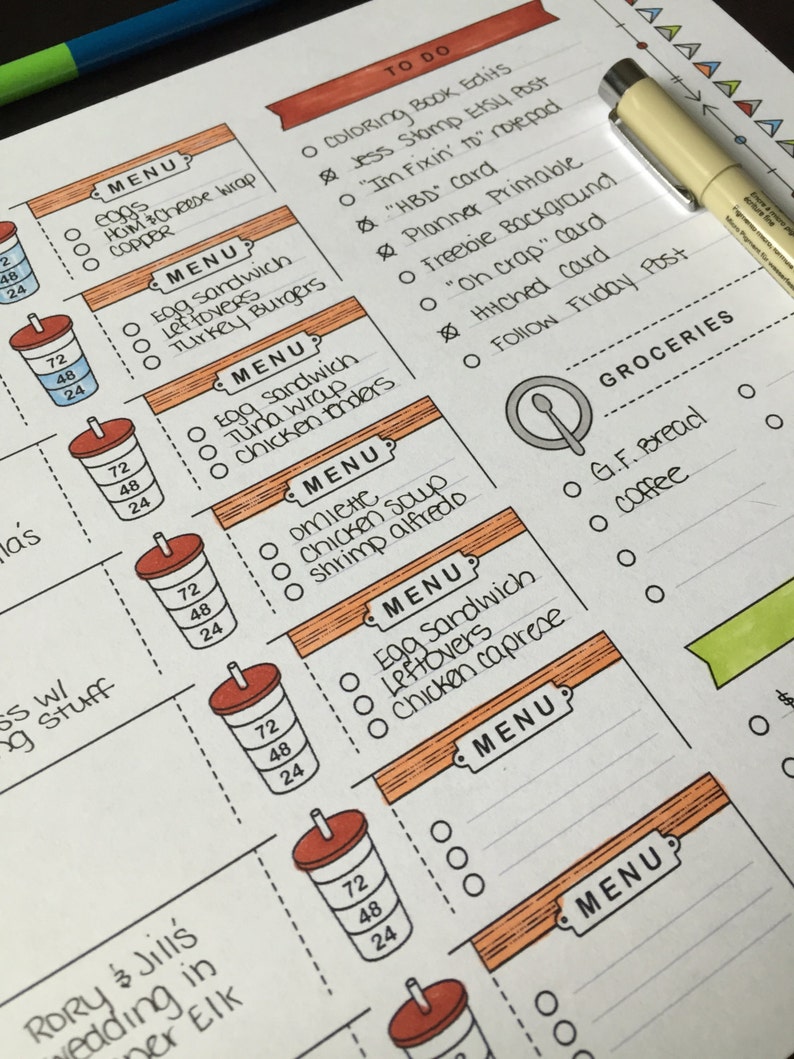 TO DO
COLORING BOOK Edits
Jess Stamp ETSY Post
"Im Fixin' to" notepad
"HBD" Card
Planner Printable
Freebie Background
"Oh Crap" Card
Hitched Card
Follow Friday Post
GROCERIES
G.F. Bread
Coffee
$
MENU
Eggs
Ham & Cheese Wrap
Copper
2
48
24
MENU
Egg Sandwich
Leftovers
Turkey Burgers
72
48
24
MENU
Egg Sandwich
Tuna Wrap
Chicken Tenders
72
48
24
MENU
Omlette
Chicken Soup
Shrimp alfredo
72
48
24
MENU
Egg Sandwich
Leftovers
Chicken Caprese
72
48
24
MENU
72
48
24
MENU
72
48
la's
ss w/
ng Stuff
Rory & Jill's
wedding in
per Elk
écriture fine